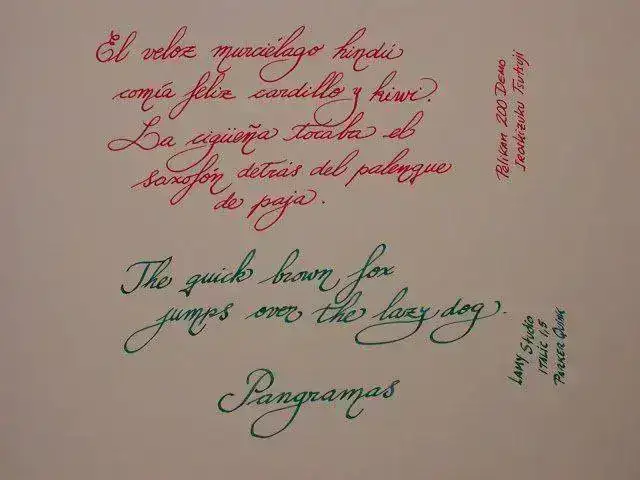 El veloz murciélago hindú
comía feliz cardillo y kiwi.
La cigüeña tocaba el
saxofón detrás del palenque
de paja.
Pelikan 200 Demo
Iroshizuku Tsutsuji
The quick brown fox
jumps over the lazy dog.
Lamy Studio
Italic 1.5
Parker Quink
Pangramas